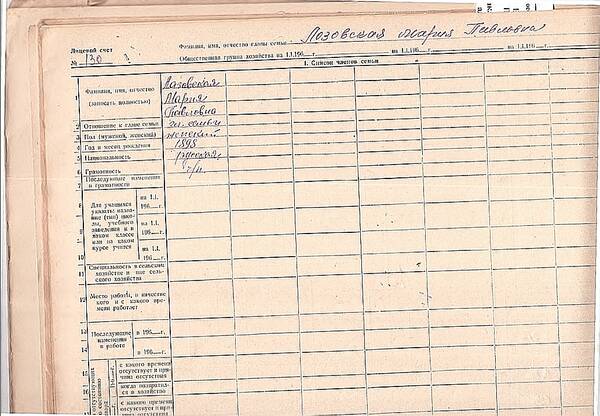 Лицевой счет
№ 130
Фамилия, имя, отчество главы семьи Лозовская Мария Павловна
Общественная группа хозяйства на 1.I.196 г. на 1.I.196 г. на 1.I.196 г. на 1.I.196 г.
I. Список членов семьи
1 Фамилия, имя, отчество (записать полностью)
Лазовская
Мария
Павловна
2 Отношение к главе семьи гл. семьи
3 Пол (мужской, женский) женский
4 Год и месяц рождения 1898
5 Национальность русская
6 Грамотность
7 Последующие изменения
в грамотности
Для учащихся
указать: название
(тип) школы,
учебного
заведения и в
каком классе
или на каком
курсе учится
8 на 1.I.
196 г.
9 на 1.I.
196 г.
10 на 1.I.
196 г.
11 Специальность в сельском
хозяйстве и вне сельского
хозяйства
12 Место работы, в качестве
кого и с какого времени
работает
13 Последующие
изменения
в работе
в 196 г.
14 в 196 г.
15 в 196 г.
с какого времени
отсутствует и причина
отсутствия
когда возвратился
в хозяйство
с какого времени
отсутствует и причина
отсутствия